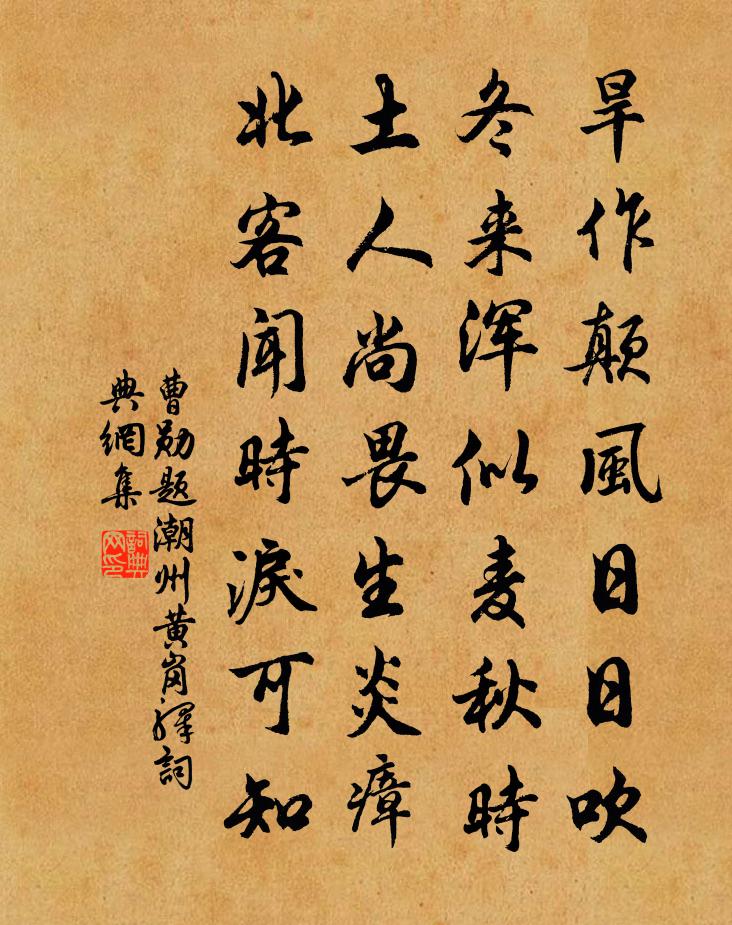 旱作颠風日日吹
冬来浑似麦秋時
土人尚畏生炎瘴
北客闻時淚可知
曹勋题潮州黄岗驛詞
典網集
詞典網印